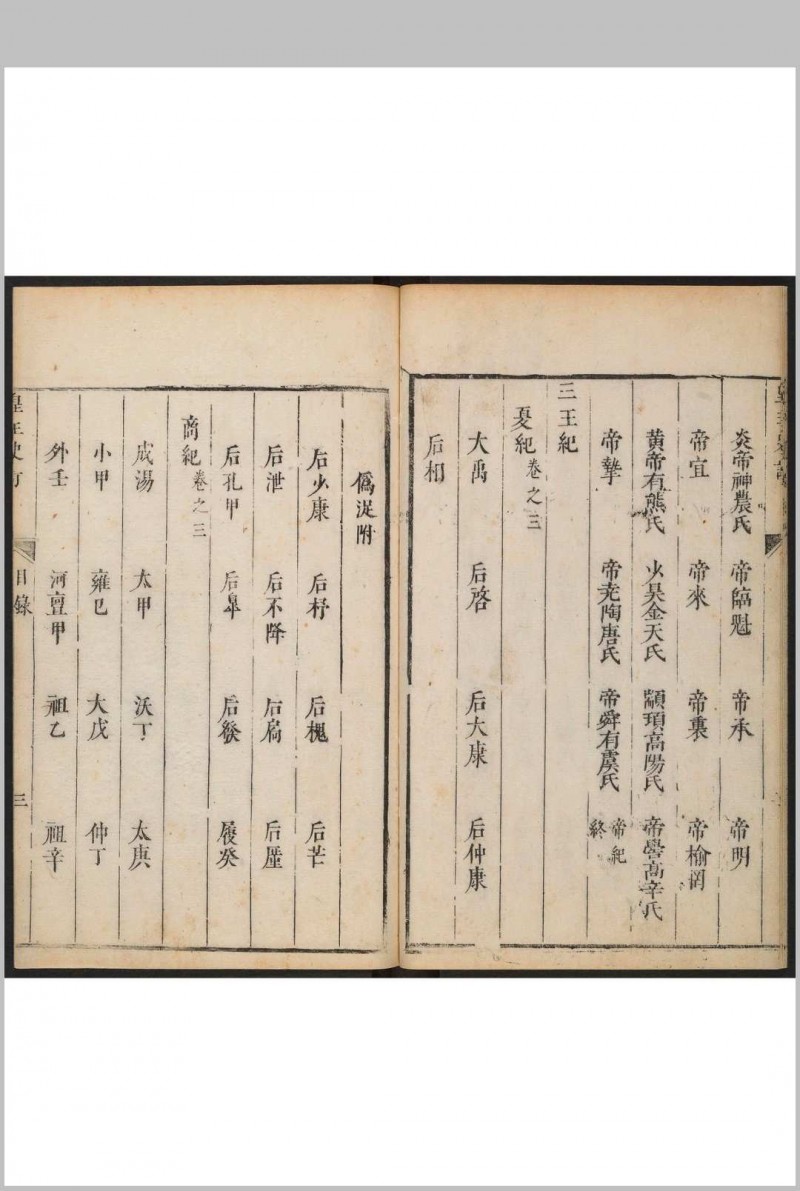 炎帝神農氏 帝臨魁 帝承 帝明
帝宜 帝來 帝裏 帝榆罔
黄帝有熊氏 少昊金天氏 顓頊高陽氏 帝嚳高辛氏
帝摯 帝尭陶唐氏 帝舜有虞氏 帝紀終
三王紀
夏紀卷之三
大禹 后啓 后大康 后仲康
后相
僞浞附
后少康 后杼 后槐 后芒
后泄 后不降 后扃 后厪
后孔甲 后皐 后發 履癸
商紀卷之三
成湯 太甲 沃丁 太庚
小甲 雍巳 大戊 仲丁
外壬 河亶甲 祖乙 祖辛
皇王史訂 目錄 三